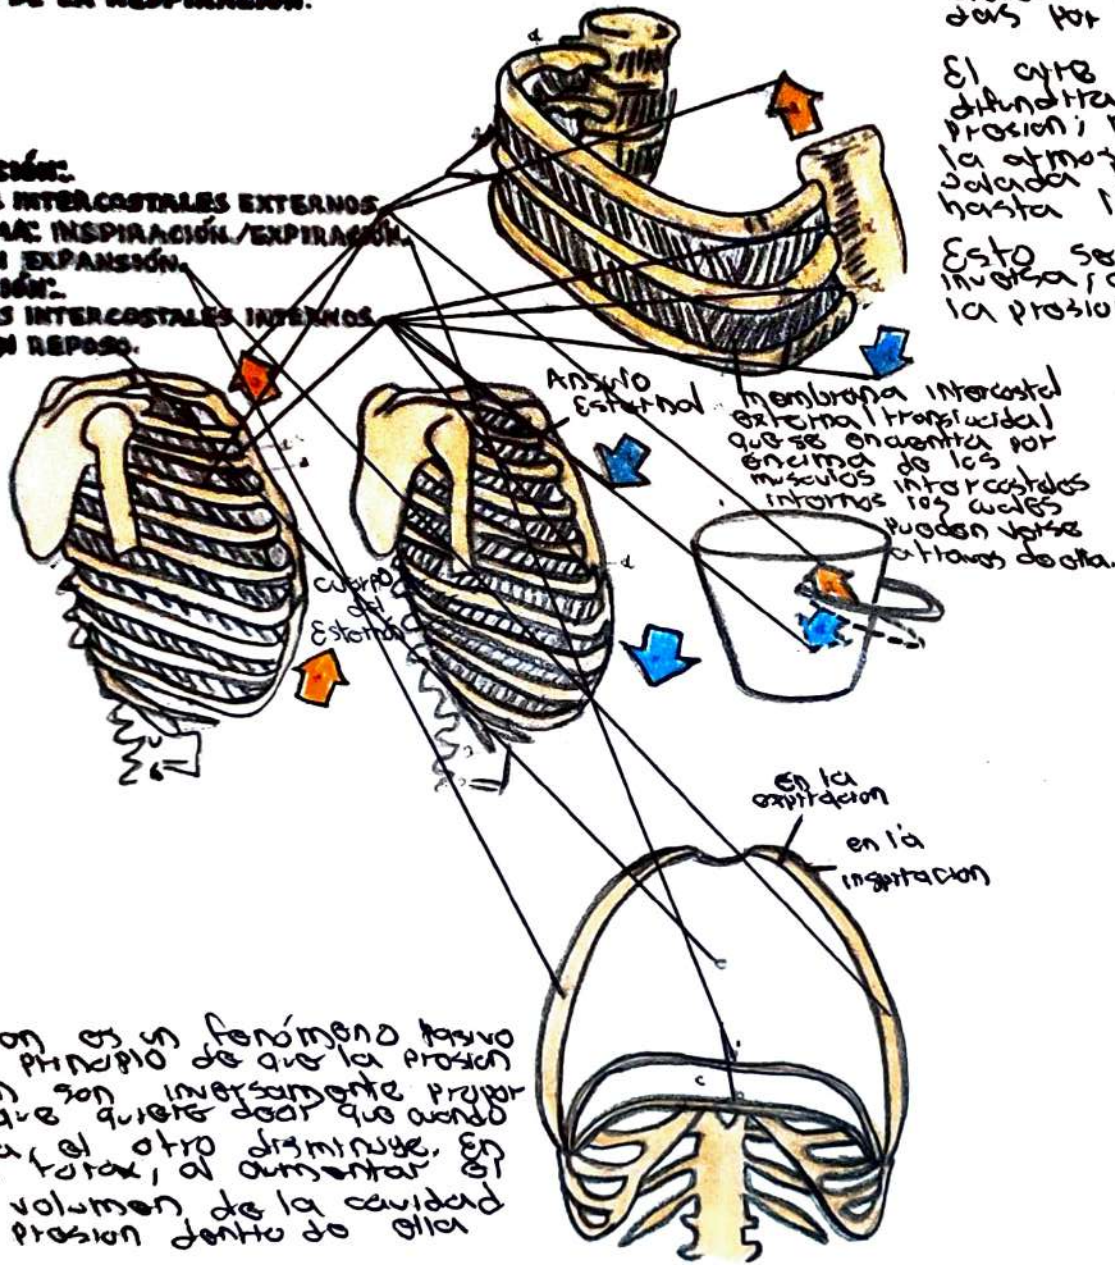 DE LA RESPIRACIÓN.
das por
El aire
presion;
la
hasta
Esto
inversa,
la presio
CIÓN:
S INTERCOSTALES EXTERNOS
MA: INSPIRACIÓN/EXPIRACIÓN.
N EXPANSIÓN.
CIÓN:
S INTERCOSTALES INTERNOS
EN REPOSO.
Angulo
Esternal
membrana intercostal
externa (translucida)
que se encuentra por
encima de los
musculos intercostales
internos los cuales
pueden verse
a traves de ella.
cuerpo
del
Esternón
en la
expiracion
en la
inspiracion
on es un fenómeno pasivo
principio de que la presion
n son inversamente propor
que quiere decir que cuando
a, el otro disminuye. En
torax, al aumentar el
volumen de la cavidad
presion dentro de ella
c